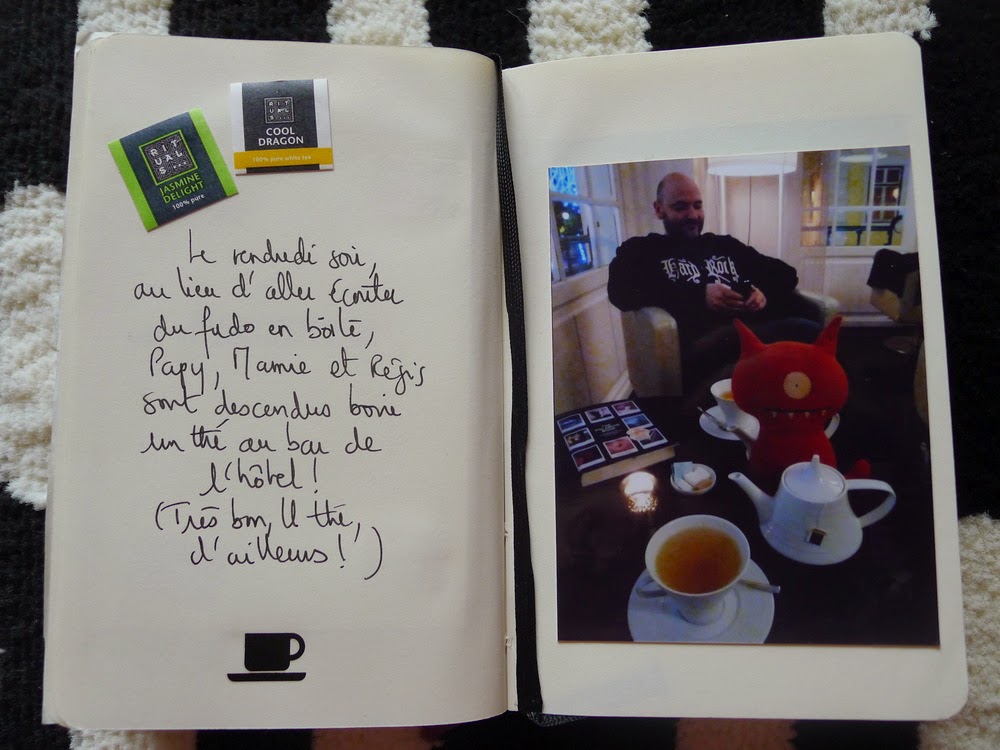 RITUALS...
JASMINE
DELIGHT
100% pure
RITUALS...
COOL
DRAGON
100% pure white tea
Le vendredi soir,
au lieu d'aller écouter
du fado en boîte,
Papy, Mamie et Régis
sont descendus boire
un thé au bar de
l'hôtel !
(Très bon, le thé,
d'ailleurs !)
Hard Rock